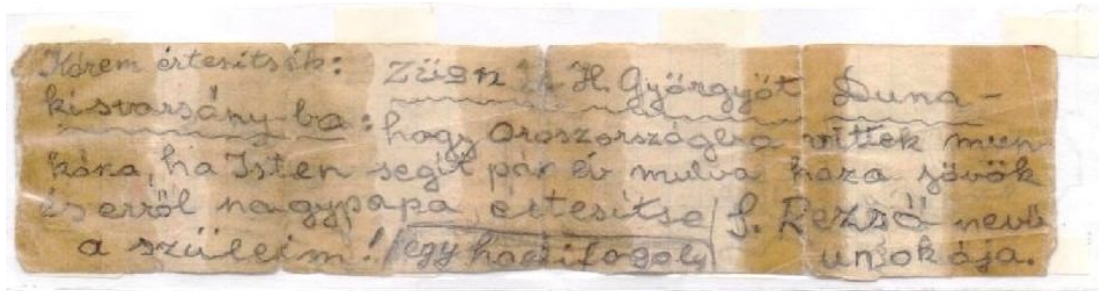 Kérem értesítsék: H. Györgyöt Duna-
kisvarsány-ba: hogy Oroszországba vittek mun
kára, ha Isten segít pár év mulva haza jövök
és erről nagypapa, értesítse S. Rezső nevű
a szüleim! egy hadifogoly unokája.